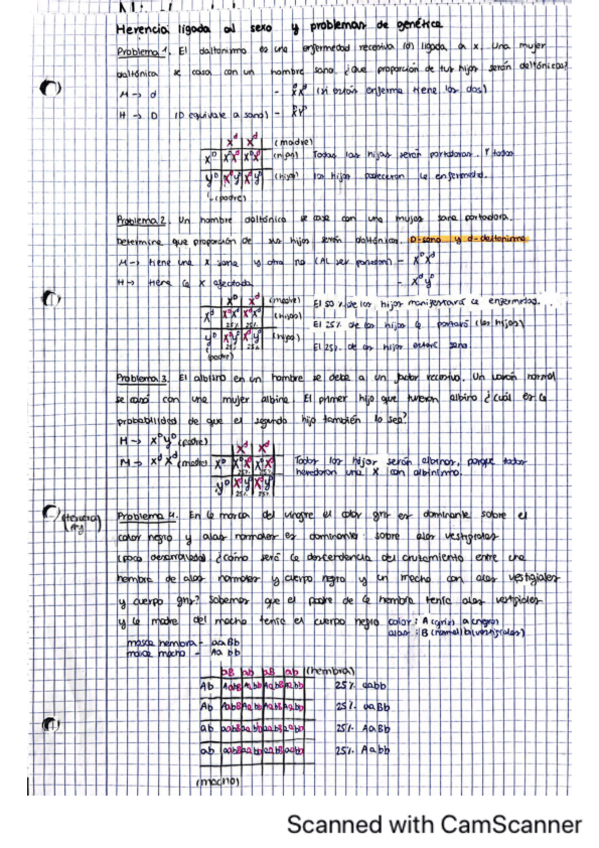 Herencia ligada al sexo y problemas de genética
Problema 1. El daltonismo es una enfermedad recesiva (d) ligada a x. Una mujer
daltónica se casa con un hombre sano. ¿Que proporción de tus hijos serán daltónicos?
M → d - XᵈXᵈ (si está enferma tiene los dos)
H → D (D equivale a sano) - XᴰY
Xᵈ Xᵈ (madre)
Xᴰ XᴰXᵈ XᴰXᵈ (hijas) Todas las hijas serán portadoras. Y todos
yᴰ Xᵈy Xᵈy (hijos) los hijos padeceran la enfermedad.
(padre)
Problema 2. Un hombre daltónico se casa con una mujer sana portadora.
Determine que proporción de sus hijos serán daltónicos. D-sano y d-daltonismo
M → tiene una X sana y otra no (AL ser portadora) - XᴰXᵈ
H → tiene la X afectada - Xᵈyᴰ
Xᴰ Xᵈ (madre) El 50 % de los hijos manifestará la enfermedad.
Xᵈ XᴰXᵈ XᵈXᵈ (hijas) El 25% de los hijos la portará (las hijas)
25% 25%
yᴰ Xᴰy Xᵈy (hijos) El 25% de los hijos estará sano
25% 25%
(padre)
Problema 3. El albino en un hombre se debe a un factor recesivo. Un varón normal
se casó con una mujer albina. El primer hijo que tuvieron albino ¿cuál es la
probabilidad de que el segundo hijo también lo sea?
H → Xᴰyᴰ (padre)
M → XᵈXᵈ (madre)
Xᵈ Xᵈ
Xᴰ XᴰXᵈ XᴰXᵈ Todos los hijos serán albinos, porque todos
25% 25% heredaron una X con albinismo.
yᴰ Xᵈy Xᵈy
25% 25%
(Herencia)
Problema 4. En la mosca del vinagre el color gris es dominante sobre el
color negro y alas normales es dominante sobre alas vestigiales
(poco desarrolladas) ¿cómo será la descendencia del cruzamiento entre una
hembra de alas normales y cuerpo negro y un macho con alas vestigiales
y cuerpo gris? Sabemos que el padre de la hembra tenía alas vestigiales
y la madre del macho tenía el cuerpo negro color: A (gris) a (negro)
alas: B (normal) b (vestigiales)
mosca hembra - aaBb
mosca macho - Aabb
aB ab aB ab (hembra)
Ab AaBb Aabb AaBb Aabb 25% aabb
Ab AaBb Aabb AaBb Aabb 25% aaBb
ab aaBb aabb aaBb aabb 25% AaBb
ab aaBb aabb aaBb aabb 25% Aabb
(macho)
Scanned with CamScanner